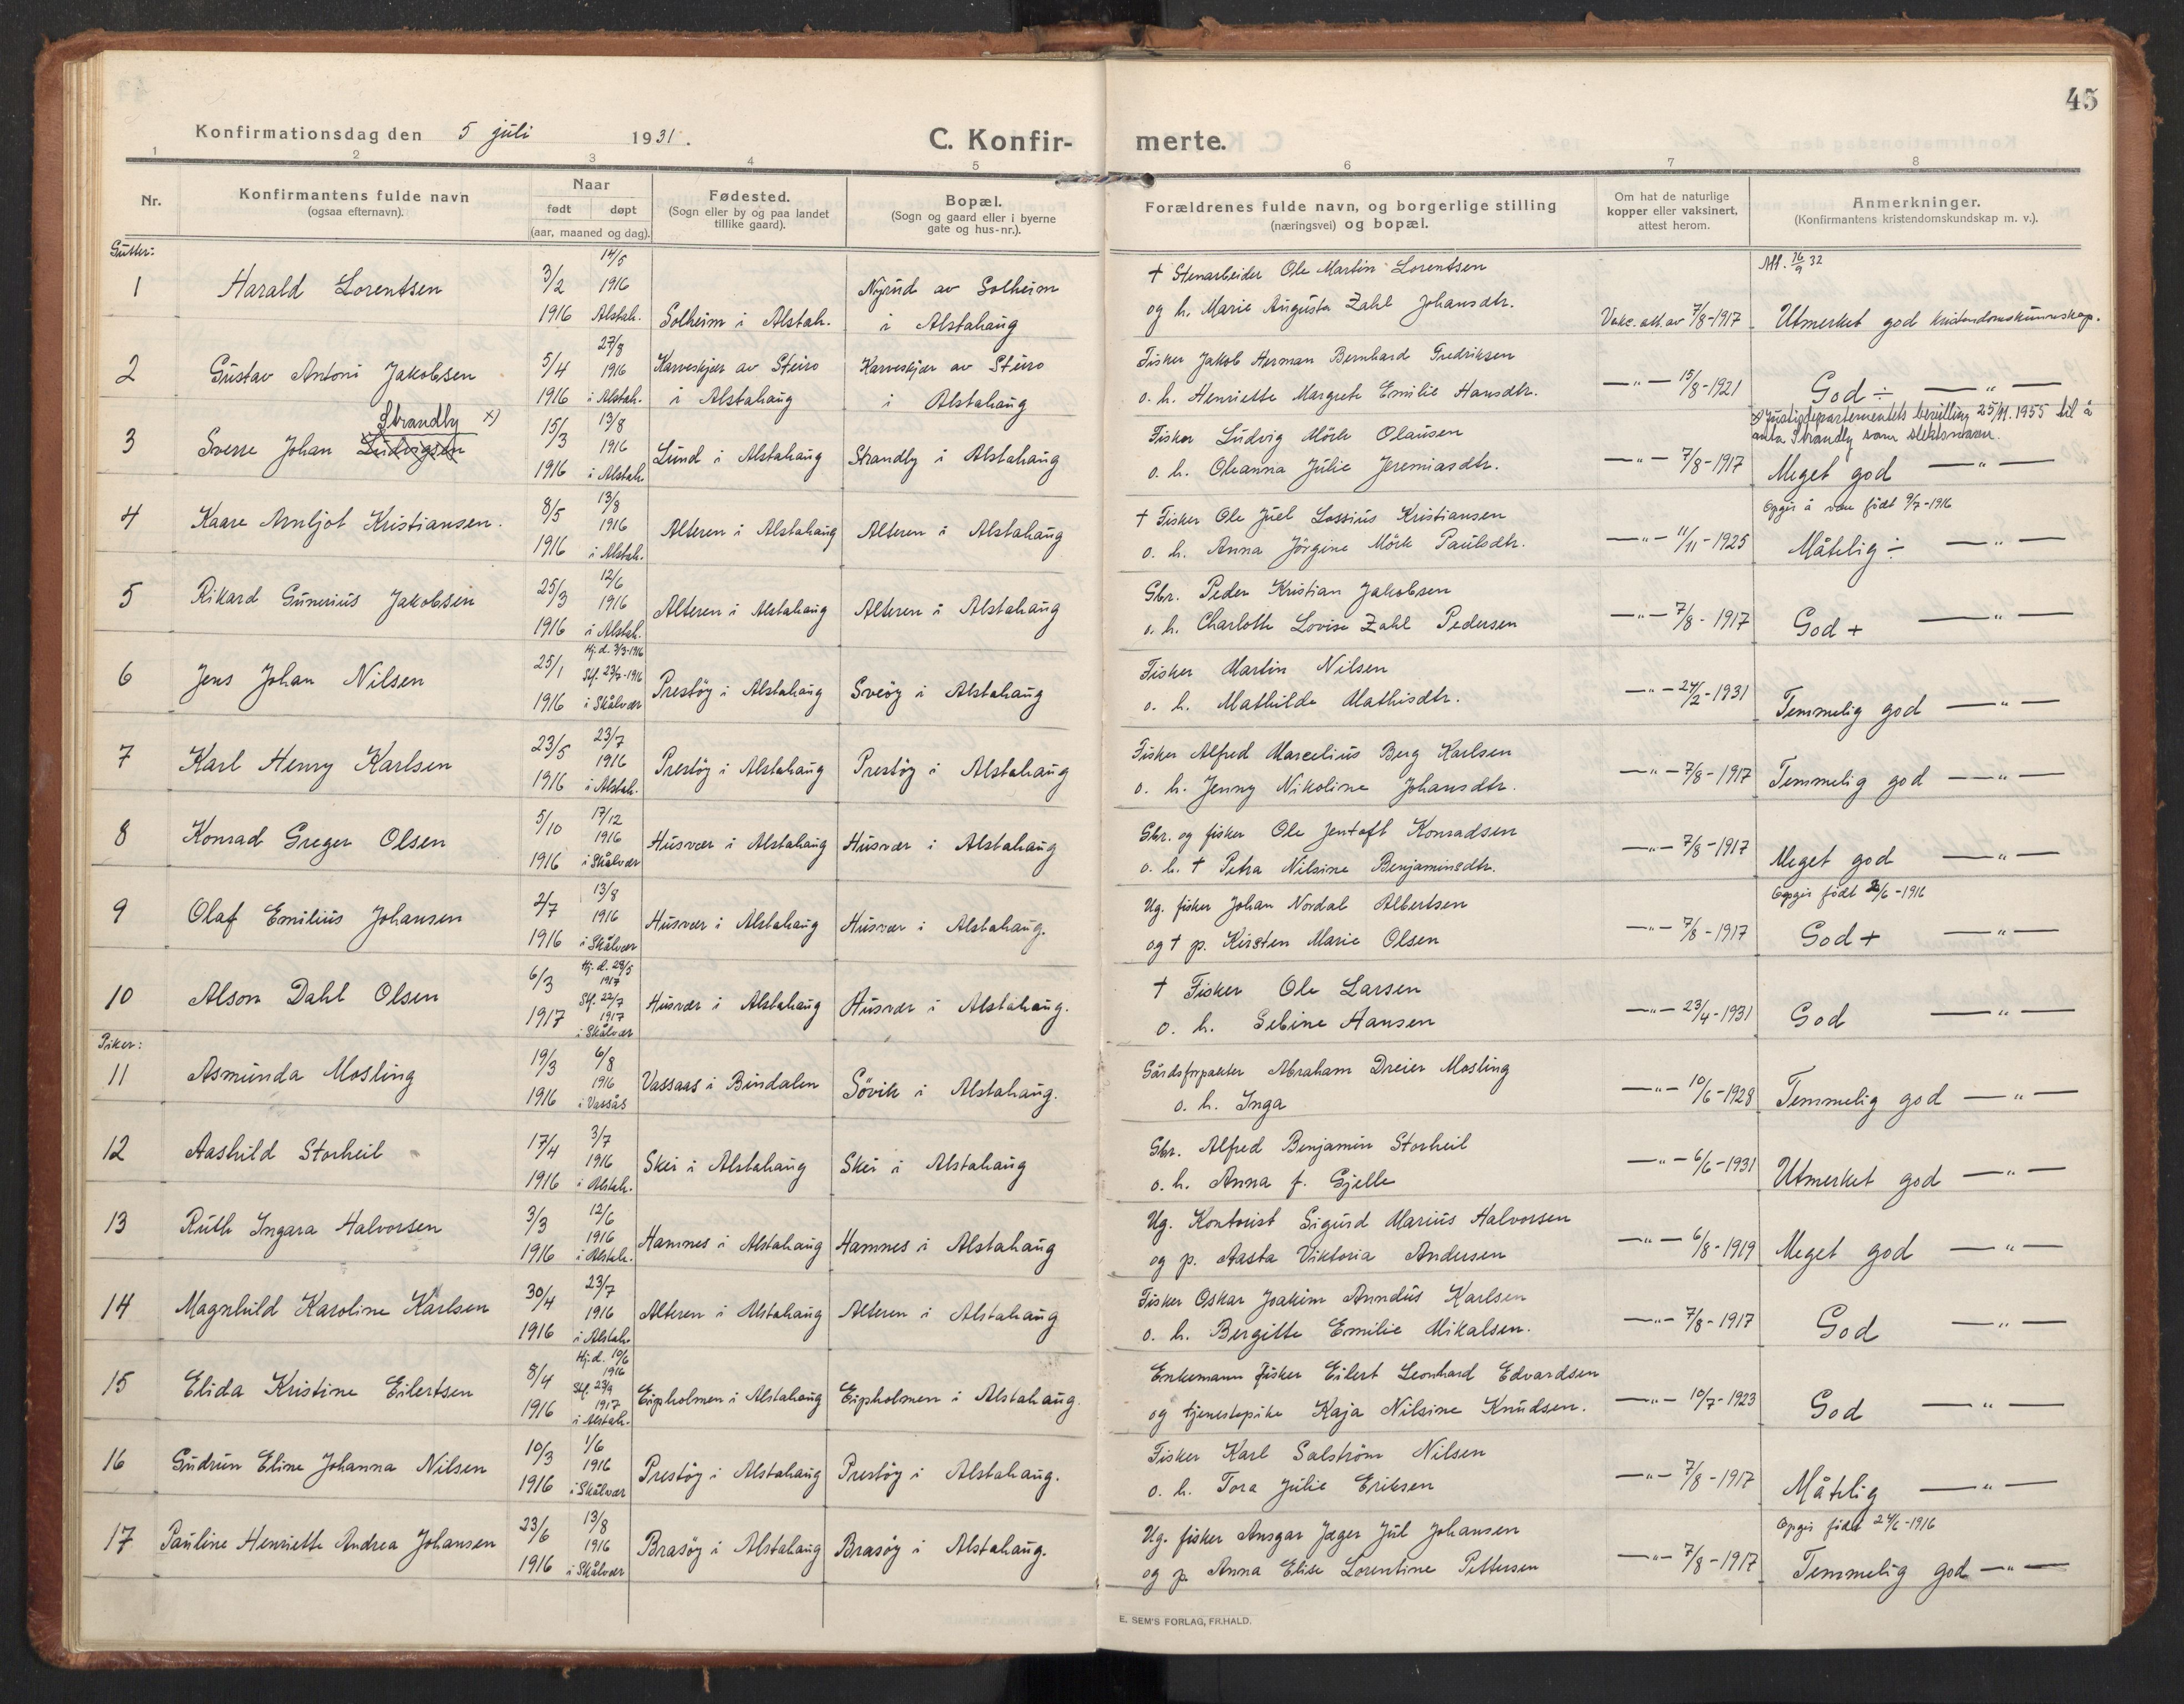 45
Konfirmationsdag den 5 juli 1931.
C. Konfir- merte.
1 2 3 4 5 6 7 8
Nr.
Konfirmantens fulde navn
(ogsaa efternavn).
Naar
født døpt
(aar, maaned og dag).
Fødested.
(Sogn eller by og paa landet
tillike gaard).
Bopæl.
(Sogn og gaard eller i byerne
gate og hus-nr.).
Forældrenes fulde navn, og borgerlige stilling
(næringsvei) og bopæl.
Om hat de naturlige
kopper eller vaksinert,
attest herom.
Anmerkninger.
(Konfirmantens kristendomskundskap m. v.).
Gutter:
1 Harald Lorentsen
3/2 1916
14/5 1916 Alstah.
Solheim i Alstah.
Nyrud av Solheim
i Alstahaug
† Stenarbeider Ole Martin Lorentsen
og h. Marie Augusta Zahl Johansdtr.
Vakc. att. av 7/8-1917
Att. 16/9 32
Utmerket god kristendomskunnskap.
2 Gustav Antoni Jakobsen
5/4 1916
27/8 1916 i Alstah.
Karveskjær av Steiro
i Alstahaug
Karveskjær av Steiro
i Alstahaug
Fisker Jakob Herman Bernhard Fredriksen
o. h. Henriette Margrete Emilie Hansdtr.
—"— 15/8-1921
God ÷ —"—
3 Sverre Johan Ludvigsen Strandby x)
15/3 1916
13/8 1916 i Alstah.
Lund i Alstahaug
Strandby i Alstahaug
Fisker Ludvig Mörk Olausen
o. h. Oleanna Julie Jeremiasdtr.
—"— 7/8-1917
x) Justisdepartementets bevilling 25/11.1955 til å
anta Strandby som slektsnavn.
Meget god —"—
4 Kaare Arnljot Kristiansen.
8/5 1916
13/8 1916 i Alstah.
Alteren i Alstahaug
Alteren i Alstahaug
† Fisker Ole Juel Lossius Kristiansen
o. h. Anna Jörgine Mörk Paulsdtr.
—"— 11/11-1925
Opgir å være födt 9/7-1916
Måtelig ÷ —"—
5 Rikard Gunerius Jakobsen
25/3 1916
12/6 1916 i Alstah.
Alteren i Alstahaug
Alteren i Alstahaug
Gbr. Peder Kristian Jakobsen
o. h. Charlotte Lovise Zahl Pedersen
—"— 7/8-1917
God + —"—
6 Jens Johan Nilsen
25/1 1916
Hj. d. 3/3-1916
Stf. 23/7-1916
i Skålvær
Prestöy i Alstahaug
Sveöy i Alstahaug
Fisker Martin Nilsen
o. h. Mathilde Mathisdtr.
—"— 24/2-1931
Temmelig god —"—
7 Karl Henry Karlsen
23/5 1916
23/7 1916 i Alstah.
Prestöy i Alstahaug
Prestöy i Alstahaug
Fisker Alfred Marcelius Berg Karlsen
o. h. Jenny Nikoline Johansdtr.
—"— 7/8-1917
Temmelig god —"—
8 Konrad Greger Olsen
5/10 1916
17/12 1916 i Skålvær
Husvær i Alstahaug
Husvær i Alstahaug
Gbr. og fisker Ole Jentoft Konradsen
o. h. † Petra Nilsine Benjaminsdtr.
—"— 7/8-1917
Meget god —"—
9 Olaf Emilius Johansen
2/7 1916
13/8 1916 i Skålvær
Husvær i Alstahaug
Husvær i Alstahaug.
Ug. fisker Johan Nordal Albertsen
og † p. Kirsten Marie Olsen
—"— 7/8-1917
God + —"—
10 Alson Dahl Olsen
6/3 1917
Hj. d. 28/5 1917
Stf. 22/7 1917
i Skålvær
Husvær i Alstahaug
Husvær i Alstahaug.
† Fisker Ole Larsen
o. h. Sebine Hansen
—"— 23/4-1931
God —"—
Piker:
11 Asmunda Mosling
19/3 1916
6/8 1916 i Vassås
Vassaas i Bindalen
Sövik i Alstahaug.
Gårdsforpakter Abraham Dreier Mosling
o. h. Inga
—"— 10/6-1928
Temmelig god —"—
12 Aashild Storheil
17/4 1916
3/7 1916 i Alstah.
Skei i Alstahaug
Skei i Alstahaug
Gbr. Alfred Benjamin Storheil
o. h. Anna f. Gjelle
—"— 6/6-1931
Utmerket god —"—
13 Ruth Ingara Halvorsen
3/3 1916
12/6 1916 i Alstah.
Hamnes i Alstahaug
Hamnes i Alstahaug
Ug. Kontorist Sigurd Marius Halvorsen
og p. Aasta Viktoria Andersen
—"— 6/8-1919
Meget god —"—
14 Magnhild Karoline Karlsen
30/4 1916
23/7 1916 i Alstah.
Alteren i Alstahaug
Alteren i Alstahaug
Fisker Oskar Joakim Anndus Karlsen
o. h. Bergitte Emilie Mikalsen.
—"— 7/8-1917
God —"—
15 Elida Kristine Eilertsen
8/4 1916
Hj. d. 10/6 1916
Stf. 23/9 1917
i Alstah.
Eipholmen i Alstahaug
Eipholmen i Alstahaug.
Enkemann fisker Eilert Leonhard Edvardsen
og tjenestepike Kaja Nilsine Knudsen.
—"— 10/7-1923
God —"—
16 Gudrun Eline Johanna Nilsen
10/3 1916
1/6 1916 i Skålvær
Prestöy i Alstahaug
Prestöy i Alstahaug.
Fisker Karl Salström Nilsen
o. h. Tora Julie Eriksen
—"— 7/8-1917
Måtelig —"—
17 Pauline Henriette Andrea Johansen
23/6 1916
13/8 1916 i Skålvær
Brasöy i Alstahaug
Brasöy i Alstahaug.
Ug. fisker Ansgar Jæger Jul Johansen
og p. Anna Elise Lorentine Pettersen
—"— 7/8-1917
Opgir födt 24/6-1916
Temmelig god —"—
E. SEM'S FORLAG, FR.HALD.